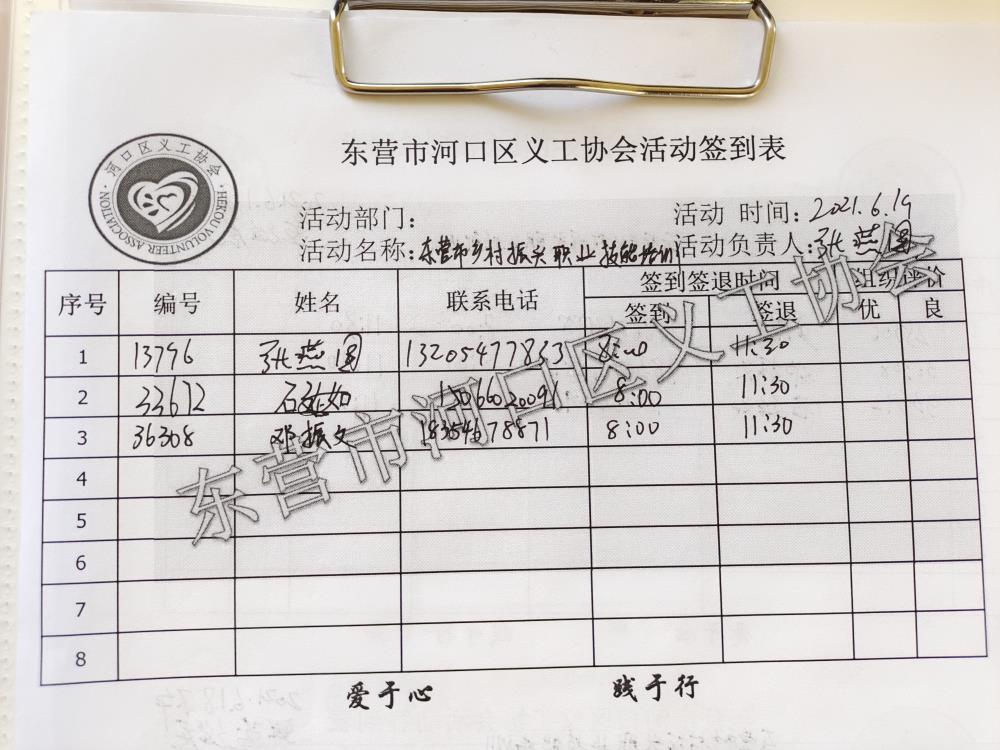 东营市河口区义工协会活动签到表
·河口区义工协会·
HEKOU VOLUNTEER ASSOCIATION
活动部门： 活动 时间：2021.6.19
活动名称：东营市乡村振兴职业技能培训 活动负责人：张燕图
序号 编号 姓名 联系电话 签到签退时间 组织评价
签到 签退 优 良
1 13796 张燕图 13205477863 8:00 11:30
2 33672 石 如 8:00 11:30
3 36308 邓振文 18354678871 8:00 11:30
4
5
6
7
8
爱于心 践于行
东营市河口区义工协会